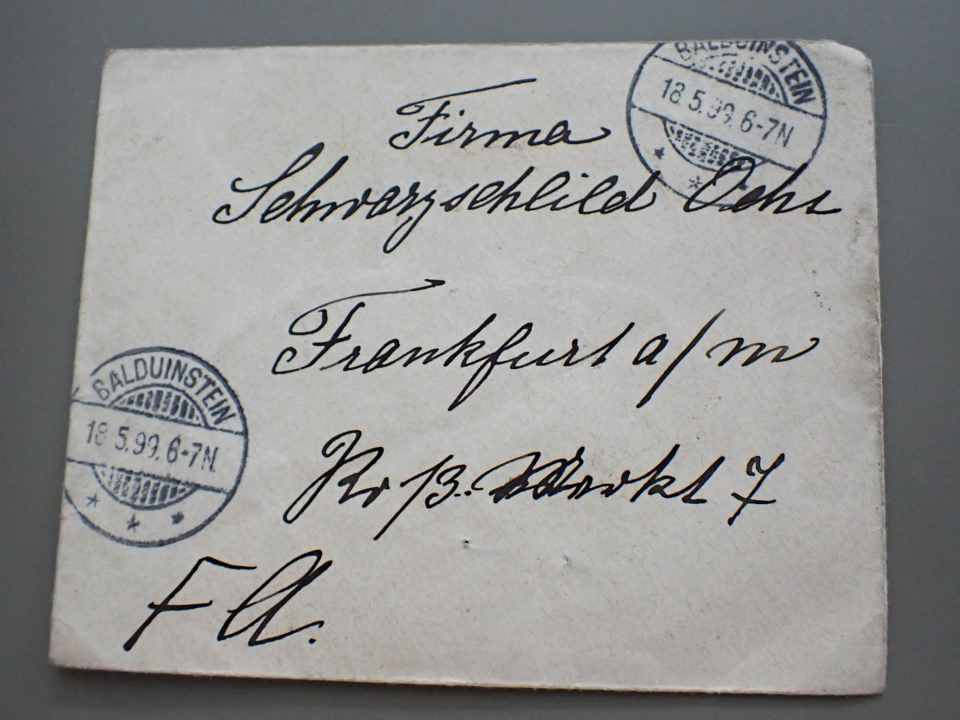 BALDUINSTEIN
18 5.99. 6-7N
Firma
Schwarzschlild Ochs
Frankfurt a/m
Roß. Markt 7
BALDUINSTEIN
18 5.99. 6-7N.
F A.